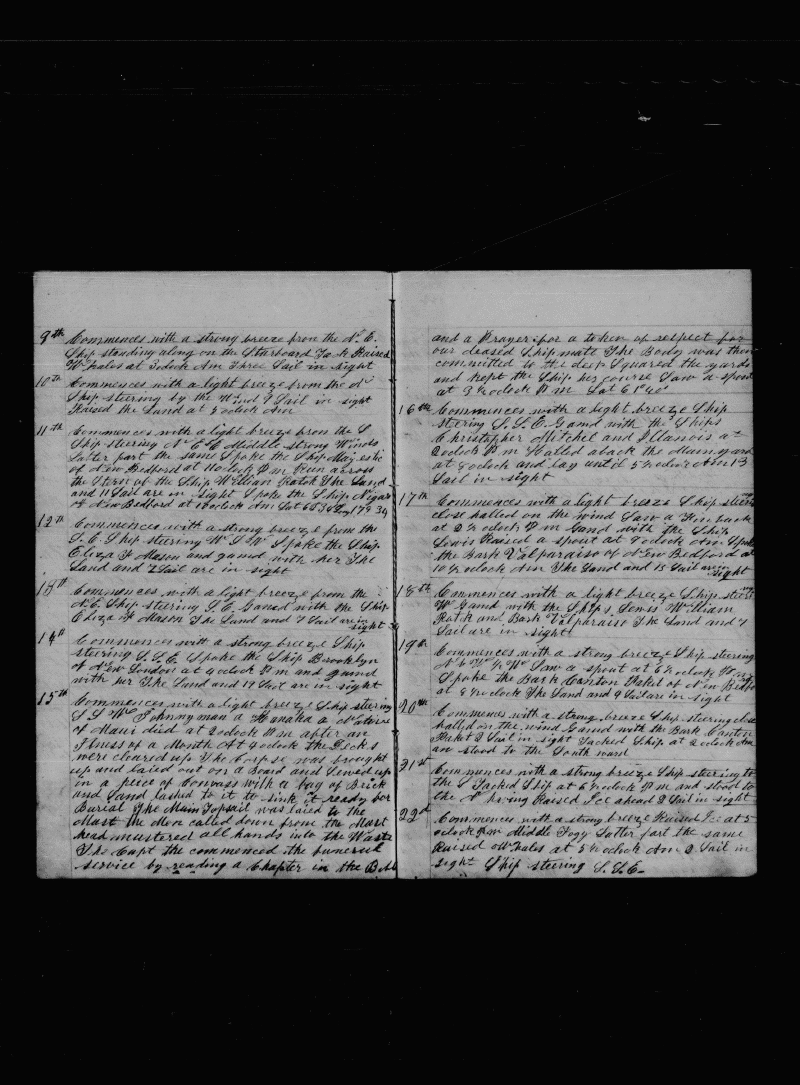 9th Commences with a strong breeze from the N. E.
Ship standing along on the Starboard Tack Raised
Whales at 3 oclock Am Three Sail in Sight
10th Commences with a light breeze from the N
Ship steering by the Wind 7 Sail in sight
Raised the Land at oclock Am
11th Commences with a light breeze from the S
Ship steering N E Middle strong Winds
Latter part the same Spoke the Ship Majestic
of New Bedford at 11 oclock P m Run across
the Stern of the Ship William Rotch The Land
and 11 Sail are in sight Spoke the Ship
of New Bedford at 10 oclock Am Lat
12th Commences with a strong breeze from the
S. E. Ship steering W S W Spoke the Ship
Eliza F Mason and gamd with her The
Land and Sail are in sight
13th Commences with a light breeze from the
N. E. Ship steering S. E. Gamed with the Ship
Eliza F Mason The Land and 7 Sail are in
sight
14th Commences with a strong breeze Ship
steering S. S. E. Spoke the Ship Brooklyn
of New London at 9 oclock P m and gamd
with her The Land and 19 Sail are in sight
15th Commences with a light breeze Ship steering
S S W Johnnyman a Kanaka a Native
of Maui died at 2 oclock P m after an
Ilness of a Month At 9 oclock the Decks
were cleared up The Corpse was brought
up and laied out on a Board and Sewed up
in a piece of Canvass with a bag of Brick
and Sand lashed to it to sink it ready for
Burial The Main Topsail was laied to the
Mast the Men called down from the Mast
head mustered all hands into the Waste
The Capt the commenced the funeral
service by reading a Chapter in the Bibl
and a Prayer for a token of respect for
our deased Ship mate The Body was then
committed to the deep Squared the yards
and kept the Ship her course Saw a spout
at 3 ½ oclock P m Lat 61° 40'
16th Commences with a light breeze Ship
steering S. S. E. Gamd with the Ships
Christopher Mitchel and Illanois at
2 oclock P m Halled aback the Main yard
at 8 oclock and lay until 5 ½ oclock Am 13
Sail in sight
17th Commences with a light breeze Ship steering
close halled on the wind Saw a Finback
at 2 ½ oclock P m Gamd with the Ship
Lewis Raised a spout at 7 oclock Am Spoke
the Bark Valparaiso of New Bedford at
10 ½ oclock Am The Land and 15 Sail are in
Sight
18th Commences with a light breeze Ship steer
W Gamd with the Ships Lewis William
Rotch and Bark Valparaiso The Land and 7
Sail are in sight
19th Commences with a strong breeze Ship steering
N b W ½ W Saw a spout at 6 ½ oclock P m
Spoke the Bark Canton Paket of New Bedfor
at 6 ½ oclock The Land and 9 Sail are in sight
20th Commences with a strong breeze Ship steering close
halled on the wind Gamd with the Bark Canton
Paket 2 Sail in sight Tacked Ship at 2 oclock Am
an stood to the South ward
21st Commences with a strong breeze Ship steering to
the S Tacked Ship at 6 ½ oclock P m and stood to
the N having Raised Ice ahead 2 Sail in sight
22d Commences with a strong breeze Raised Ice at 5
oclock P m Middle Fogy Latter part the same
Raised Whales at 5 ½ oclock Am 2 Sail in
sight Ship steering S. S. E.